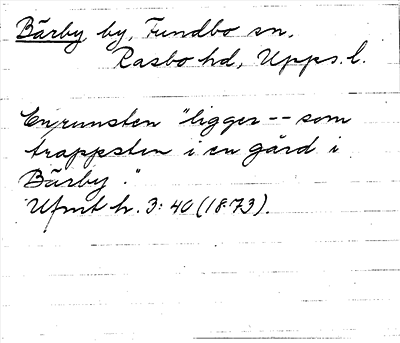 Bärby by, Funbo sn,
Rasbo hd, Upps. l.
En runsten "ligger -- som
trappsten i en gård i
Bärby."
Ufmt h. 3: 40 (1873).